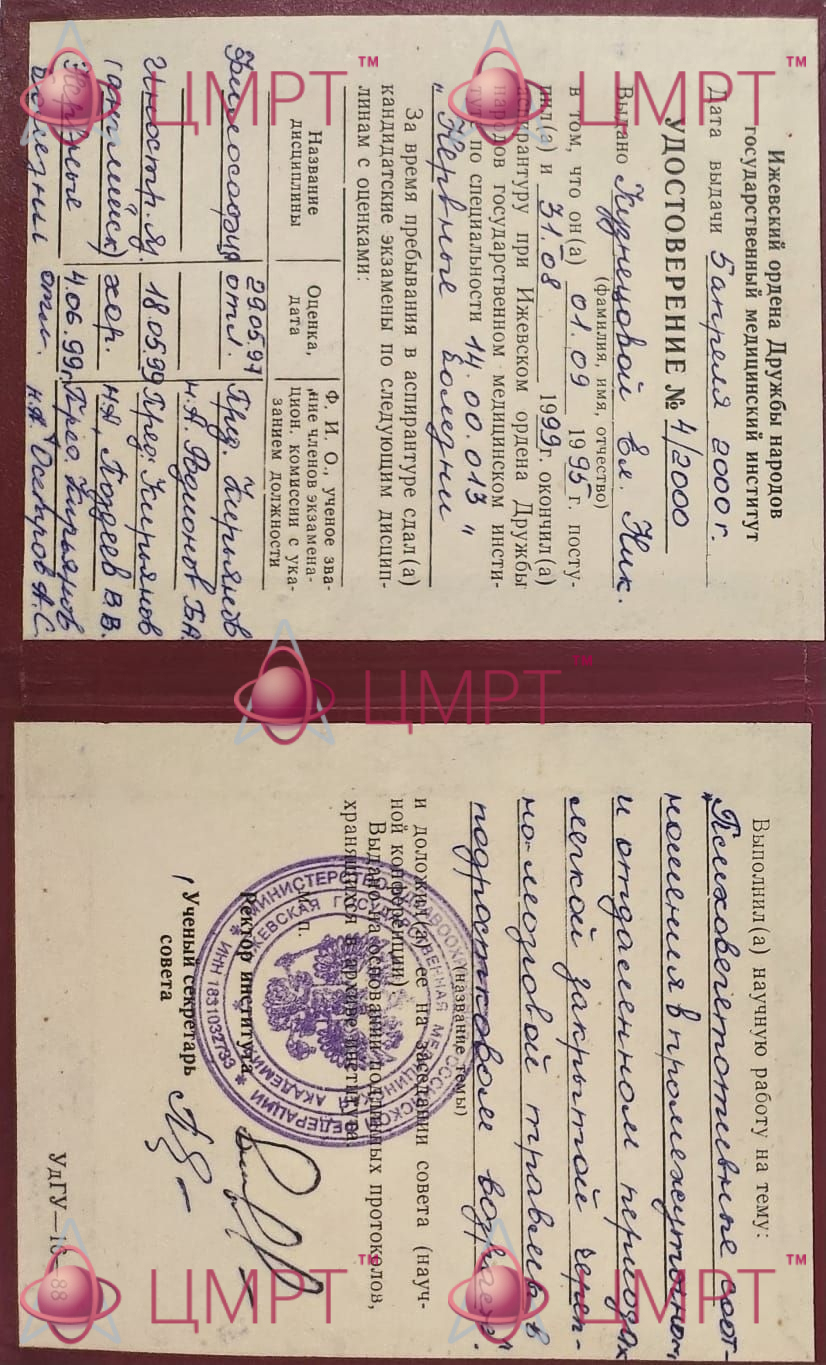 Ижевский ордена Дружбы народов
государственный медицинский институт
Дата выдачи 5 апреля 2000 г.
УДОСТОВЕРЕНИЕ № 4/2000
Выдано Кузнецовой Ел. Ник.
(фамилия, имя, отчество)
в том, что он(а) 01.09 1995 г. посту-
пил(а) и 31-08 1999 г. окончил(а)
аспирантуру при Ижевском ордена Дружбы
народов государственном медицинском инсти-
туте по специальности 14.00.013
„Нервные болезни"
За время пребывания в аспирантуре сдал(а)
кандидатские экзамены по следующим дисцип-
линам с оценками:
Название
дисциплины
Оценка,
дата
Ф. И. О., ученое зва-
ние членов экзамена-
цион. комиссии с ука-
занием должности
29.05.97
Философия отл. Пред. Кирьянов
Н.А. Родионов Б.А.
Иностр. яз. 18.05.99 Пред. Кирьянов
(английск) хор. Н.А, Поздеев В.В.
Нервные 4.06.99г. Пред. Кирьянов
болезни отл. Н.А. Осетров А.С.
Выполнил(а) научную работу на тему:
„Психовегетативные соот-
ношения в промежуточном
и отдаленном периодах
легкой закрытой череп-
но-мозговой травмы в
подростковом возрасте".
(название темы)
и доложил(а) ее на заседании совета (науч-
ной конференции)
Выдано на основании подлинных протоколов,
хранящихся в архиве института
М. п.
Ректор института
Ученый секретарь
совета
УдГУ—16—88
ИНН 1831032733
ЦМРТ™
ЦМРТ™
ЦМРТ™
ЦМРТ™
ЦМРТ™